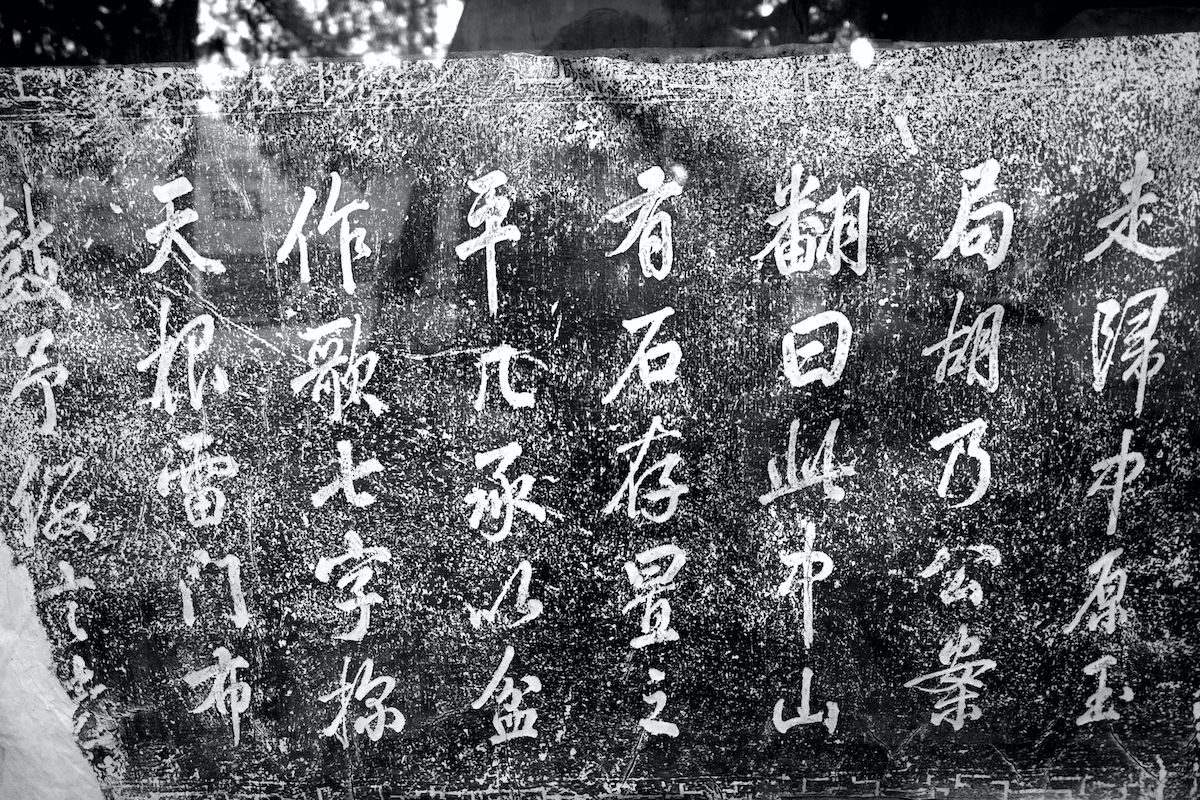 走歸中原玉
局胡乃公案
翻曰此中山
有石存置之
平几承以盆
作歌七字探
天根雷門布
鼓予